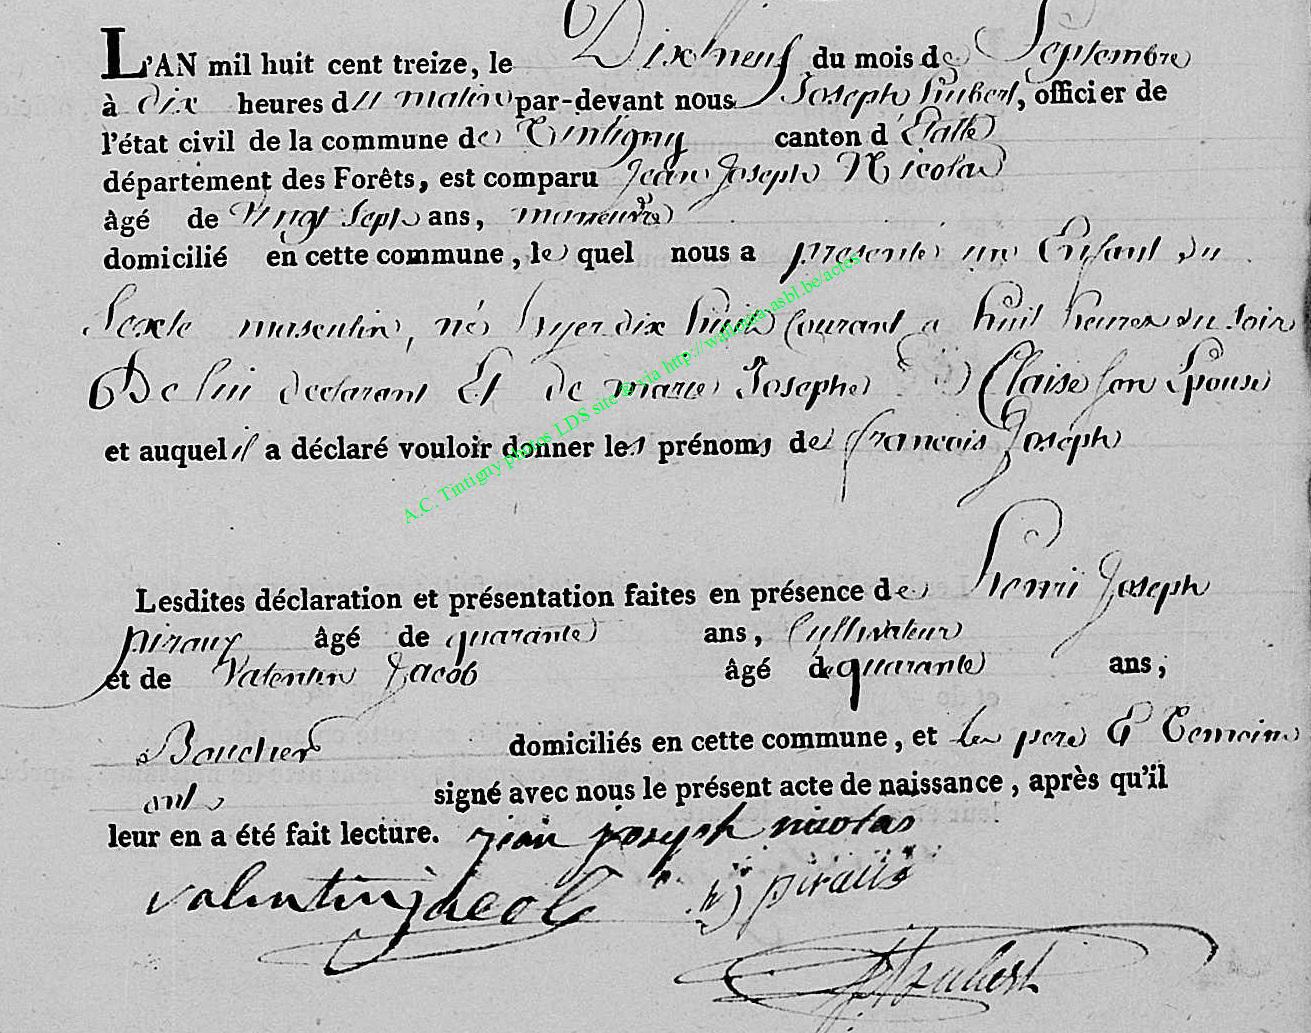 L'AN mil huit cent treize, le Dix neuf du mois de Septembre
à dix heures du matin par-devant nous Joseph hubert, officier de
l'état civil de la commune de Tintigny canton d'Etalle
département des Forêts, est comparu Jean Joseph Nicolas
âgé de vingt sept ans, manœuvre
domicilié en cette commune, le quel nous a presenté un Enfant du
Sexte masculin, né hyer dix huit Courant a huit heures du soir
De lui declarant Et de marie Josephe Claise son Epouse
et auquel il a déclaré vouloir donner les prénoms de francois Joseph
Lesdites déclaration et présentation faites en présence de henri Joseph
piraux âgé de quarante ans, Cultivateur
et de Valentin Jacob âgé de quarante ans,
Boucher domiciliés en cette commune, et les pere Et Temoins
ont signé avec nous le présent acte de naissance, après qu'il
leur en a été fait lecture. jean joseph nicolas
valentin jacob hj piraux
J hubert
A.C. Tintigny photos LDS site & via http://wallonia-asbl.be/actes